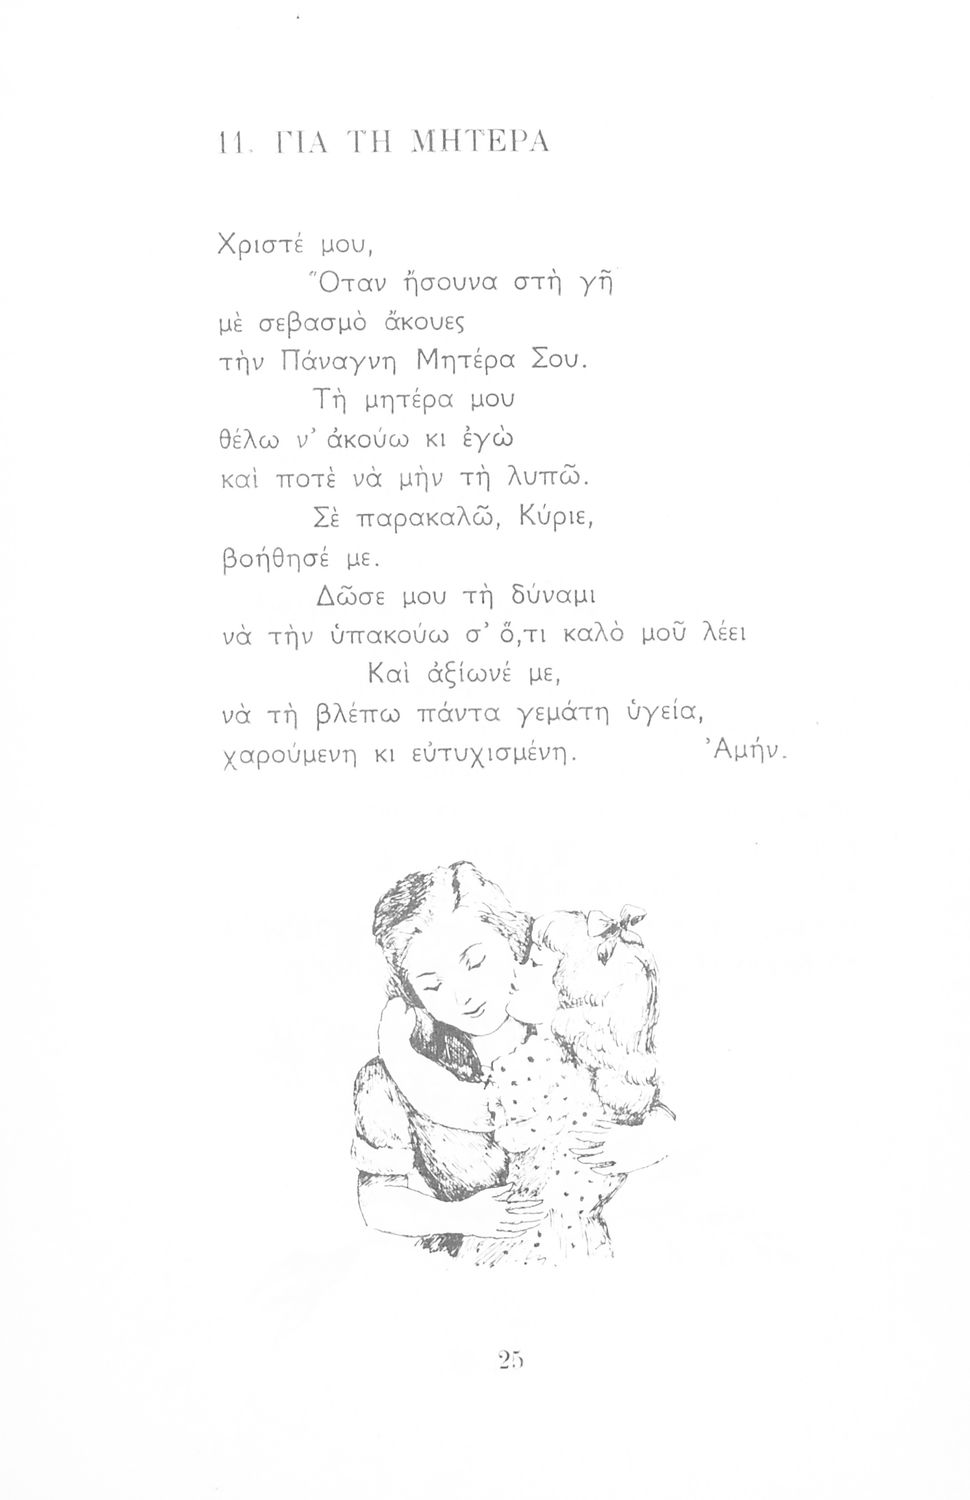 11. ΓΙΑ ΤΗ ΜΗΤΕΡΑ
Χριστέ μου,
Ὅταν ἤσουνα στὴ γῆ
μὲ σεβασμὸ ἄκουες
τὴν Πάναγνη Μητέρα Σου.
Τὴ μητέρα μου
θέλω ν' ἀκούω κι ἐγὼ
καὶ ποτὲ νὰ μὴν τὴ λυπῶ.
Σὲ παρακαλῶ, Κύριε,
βοήθησέ με.
Δῶσε μου τὴ δύναμι
νὰ τὴν ὑπακούω σ' ὅ,τι καλὸ μοῦ λέει
Καὶ ἀξίωνέ με,
νὰ τὴ βλέπω πάντα γεμάτη ὑγεία,
χαρούμενη κι εὐτυχισμένη. Ἀμήν.
25